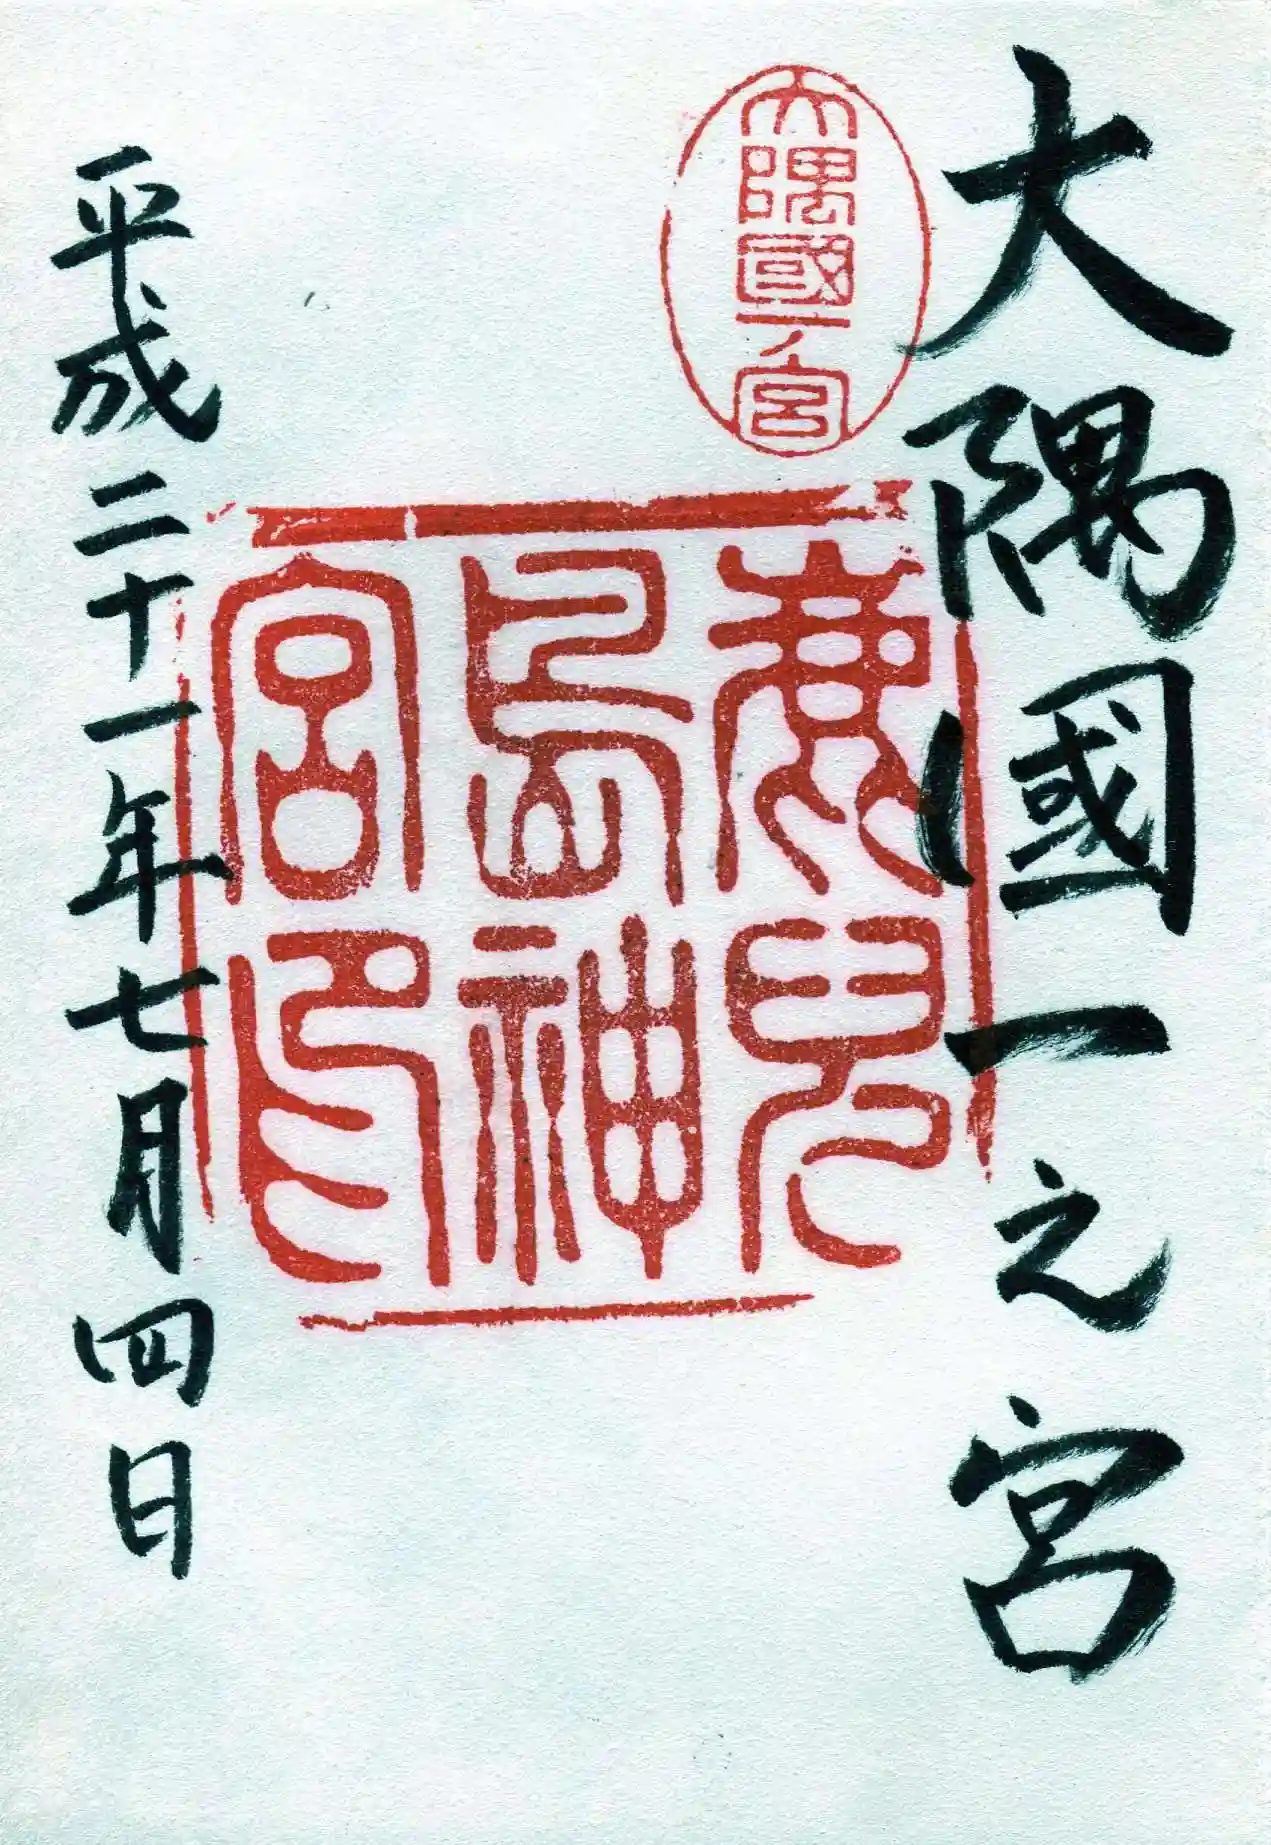 大隅國一之宮
大隅國一ノ宮
鹿兒
島神
宮印
平成二十一年七月四日